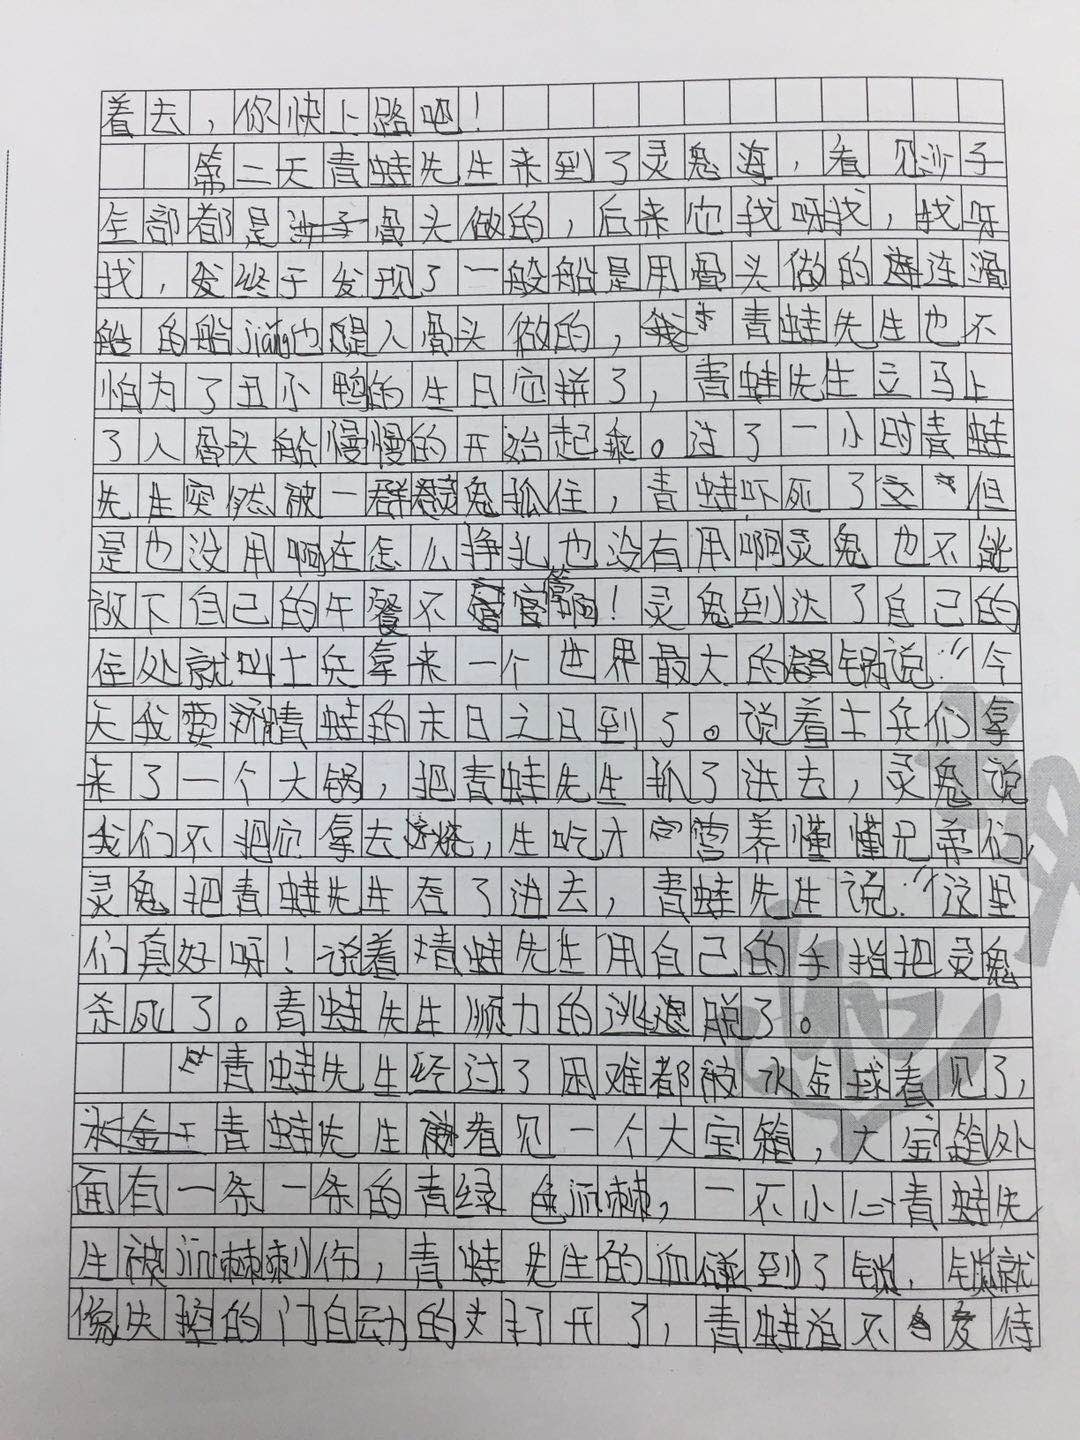 着去，你快上路吧！
第二天青蛙先生来到了灵鬼海，看见沙子
全部都是沙子骨头做的，后来它找呀找，找呀
找，发终于发现了一般船是用骨头做的连滑
船的船jiāng也是人骨头做的，青蛙先生也不
怕为了丑小鸭的生日它拼了，青蛙先生立马上
了人骨头船慢慢的开始起乘。过了一小时青蛙
先生突然被一群灵鬼抓住，青蛙吓死了但
是也没用啊在怎么挣扎也没有用啊灵鬼也不能
放下自己的午餐不管啊！灵鬼到达了自己的
住处就叫士兵拿来一个世界最大的锅说：“今
天我要青蛙的末日之日到了。说着士兵们拿
来了一个大锅，把青蛙先生抓了进去，灵鬼说
我们不把它拿去烧，生吃才营养懂懂兄弟们，
灵鬼把青蛙先生吞了进去，青蛙先生说：“这里
们真好呀！说着蜻蛙先生用自己的手指把灵鬼
杀死了。青蛙先生顺力的逃脱了。
青蛙先生经过了困难都被水金球看见了，
水金王青蛙先生看见一个大宝箱，大宝箱处
面有一条一条的青绿色jīn棘，一不小心青蛙先
生被jīn棘刺伤，青蛙先生的血碰到了锁，锁就
像失控的门自动的打开了，青蛙迫不爱待